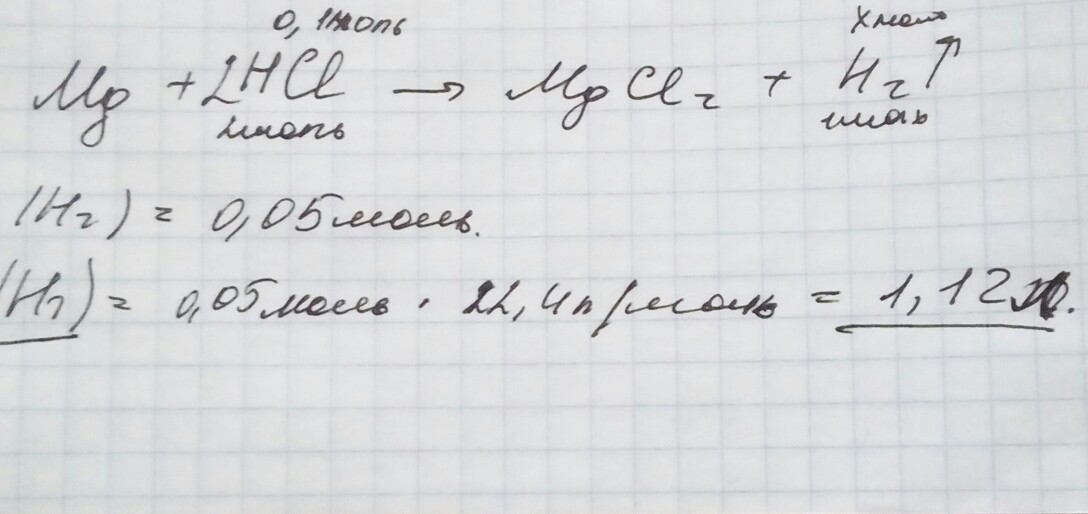 0,1моль х моль
Mg + 2HCl → MgCl₂ + H₂↑
2моль 1моль
(H₂) = 0,05 моль.
(H₂) = 0,05 моль · 22,4 л/моль = 1,12 л.